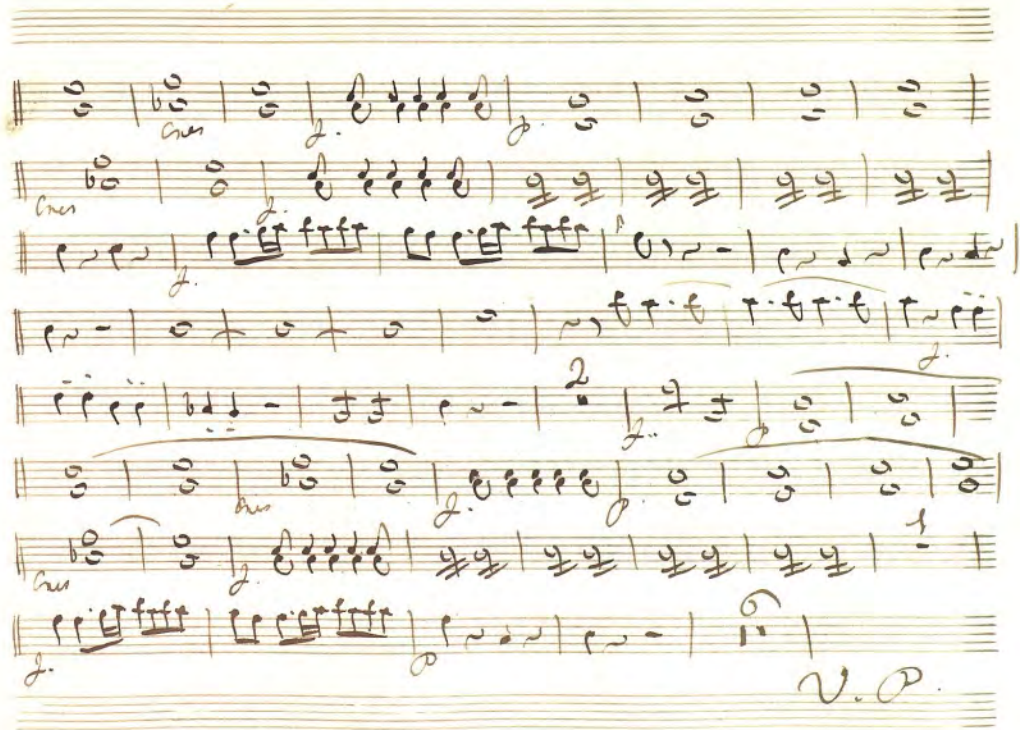 Cres f. p.
Cres f.
f.
f.
2
f. p
Cres f. p
1
Cres f.
6
f. p
V. P.